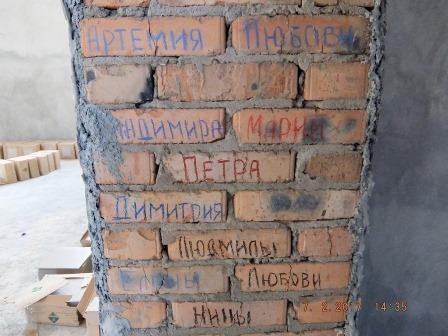 АРТЕМИЯ ЛЮБОВИ
МАРИИ
ПЕТРА
ДИМИТРИЯ
ЛЮДМИЛЫ
ЛЮБОВИ
НИНЫ
14:35